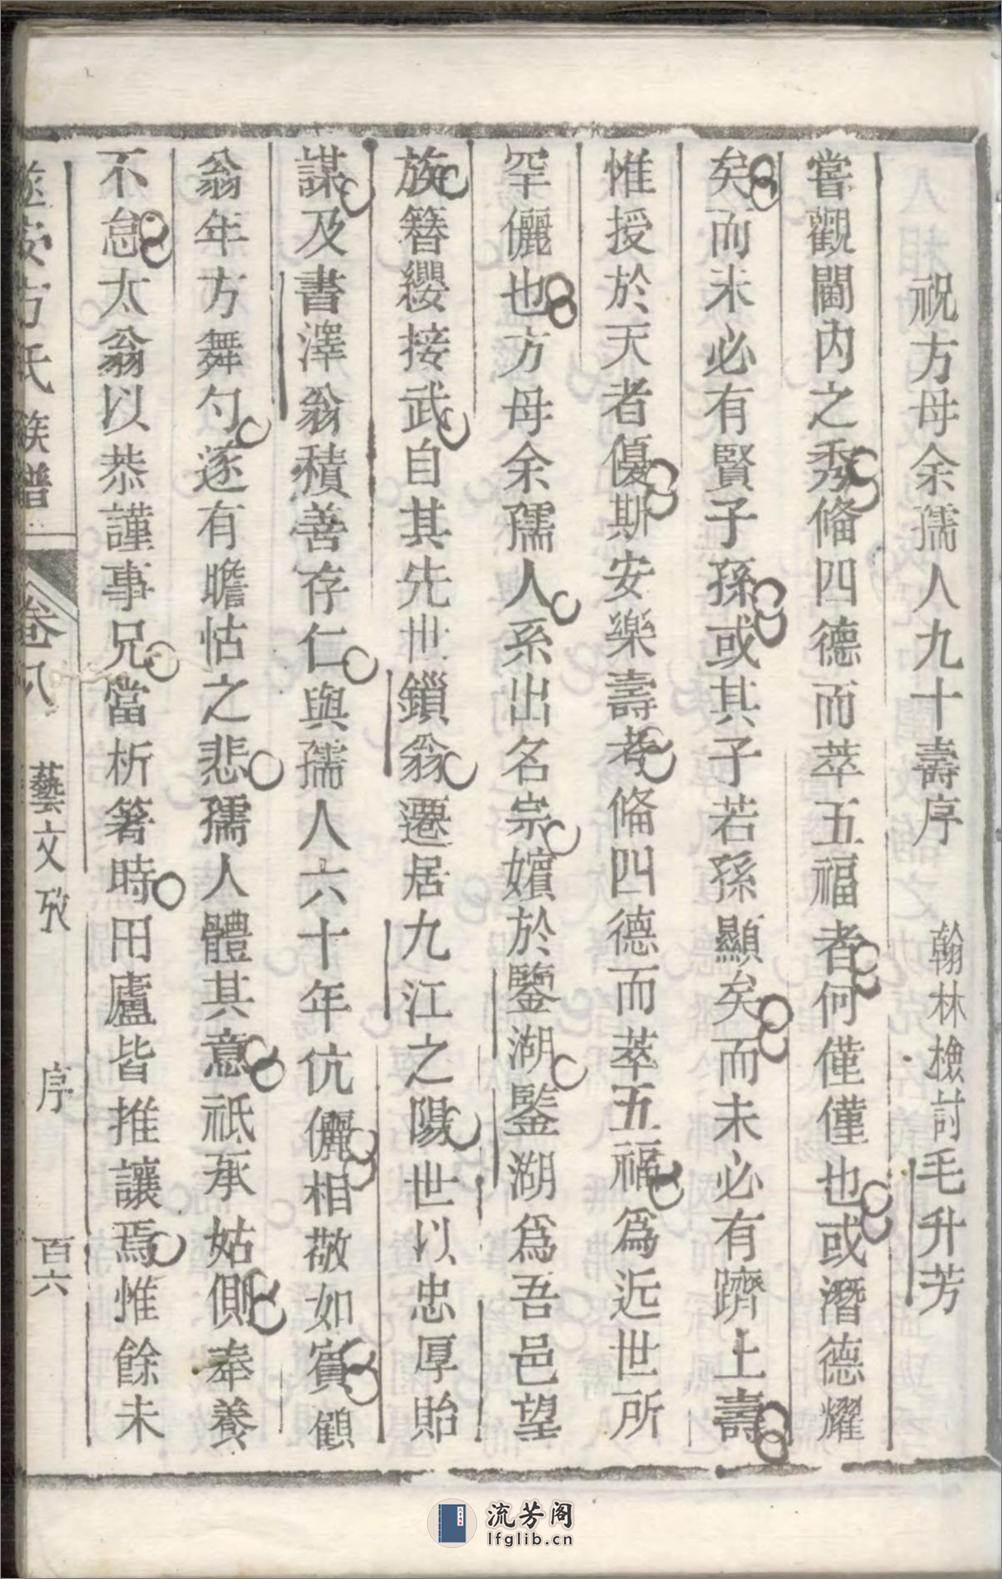 祝方母余孺人九十壽序 翰林檢討毛升芳
嘗觀閫內之秀俻四德而萃五福者何僅僅也或潛德耀
矣而未必有賢子孫或其子若孫顯矣而未必有躋上壽
惟授於天者優斯安樂壽考俻四德而萃五福爲近世所
罕儷也方母余孺人系出名宗嬪於鑒湖鑒湖爲吾邑望
族簪纓接武自其先世鎖翁遷居九江之陽世以忠厚貽
謀及書澤翁積善存仁與孺人六十年伉儷相敬如賓顧
翁年方舞勺遂有瞻怙之悲孺人體其意祇承姑側奉養
不怠太翁以恭謹事兄當析箸時田廬皆推讓焉惟餘未
遂安方氏族譜 卷八 藝文攷 序 百六
流芳阁
lfglib.cn